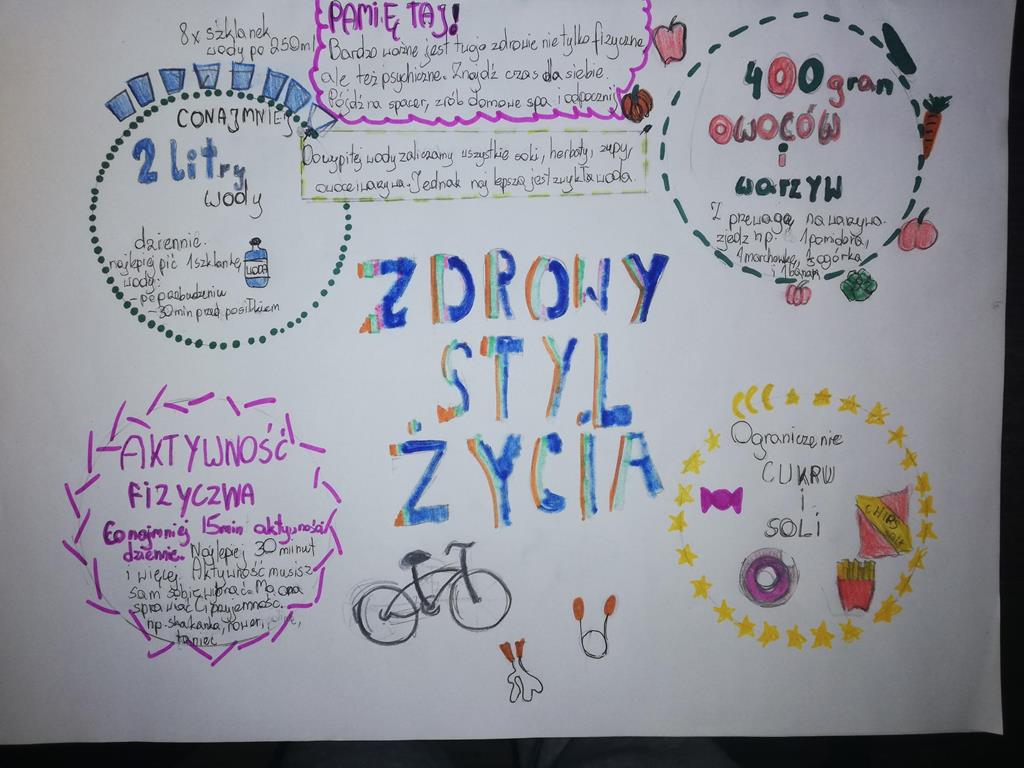 8x szklanek
wody po 250ml
CONAJMNIEJ
2 litry
wody
dziennie.
najlepiej pić 1 szklankę
wody:
- po przebudzeniu
- 30 min przed posiłkiem
WODA
PAMIĘTAJ!
Bardzo ważne jest twoje zdrowie nie tylko fizyczne
ale też psychiczne. Znajdź czas dla siebie.
Pójdź na spacer, zrób domowe spa i odpocznij
Do wypitej wody zaliczamy wszystkie soki, herboty, zupy,
owoce i warzywa. Jednak naj lepsza jest zwykła woda.
400 gran
OWOCÓW
i
warzyw
Z przewagą na warzywa.
zjedz np. 1 pomidora,
1 marchewkę, 1 ogórka
i 1 banan
ZDROWY
STYL
ŻYCIA
AKTYWNOŚĆ
FIZYCZWA
Co najmniej 15min aktywności
dziennie. Najlepiej 30 minut
i więcej. Aktywność musisz
sam sobie wybrać. Ma ona
sprawiać Ci przyjemność.
np. skakanka, rower,
taniec
Ograniczenie
CUKRU
i
SOLI
CHIPS